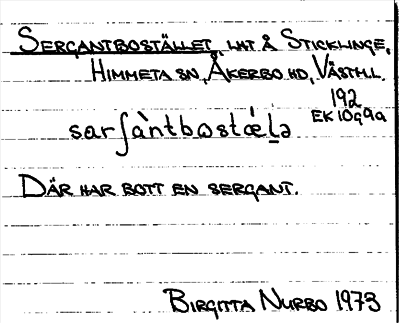 SERGANTBOSTÄLLET, LHT Å STICKLINGE,
HIMMETA SN, ÅKERBO HD, VÄSTML.
192
EK 10g9a
sarʃàntbωstǽḻə
DÄR HAR BOTT EN SERGANT.
BIRGITTA NURBO 1973